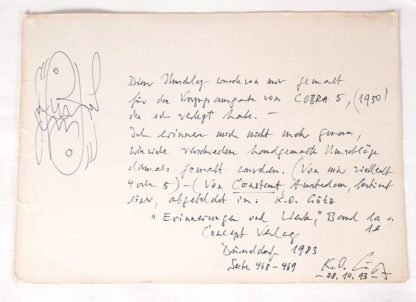 Dieser Umschlag wurde von mir gemalt
für die Vorzugsausgabe von COBRA 5, (1950)
die ich verlegt habe. –
Ich erinnere mich nicht mehr genau,
wieviele verschiedene handgemalte Umschläge
damals gemalt wurden. (Von mir vielleicht
4 oder 5) – (Von Constant Amsterdam bestimmt
einer, abgebildet in: K.O. Götz
"Erinnerungen und Werk," Band 1a u.
1b
Concept Verlag
Düsseldorf 1983
Seite 468-469
K.O. Götz
– 28.10.93 –